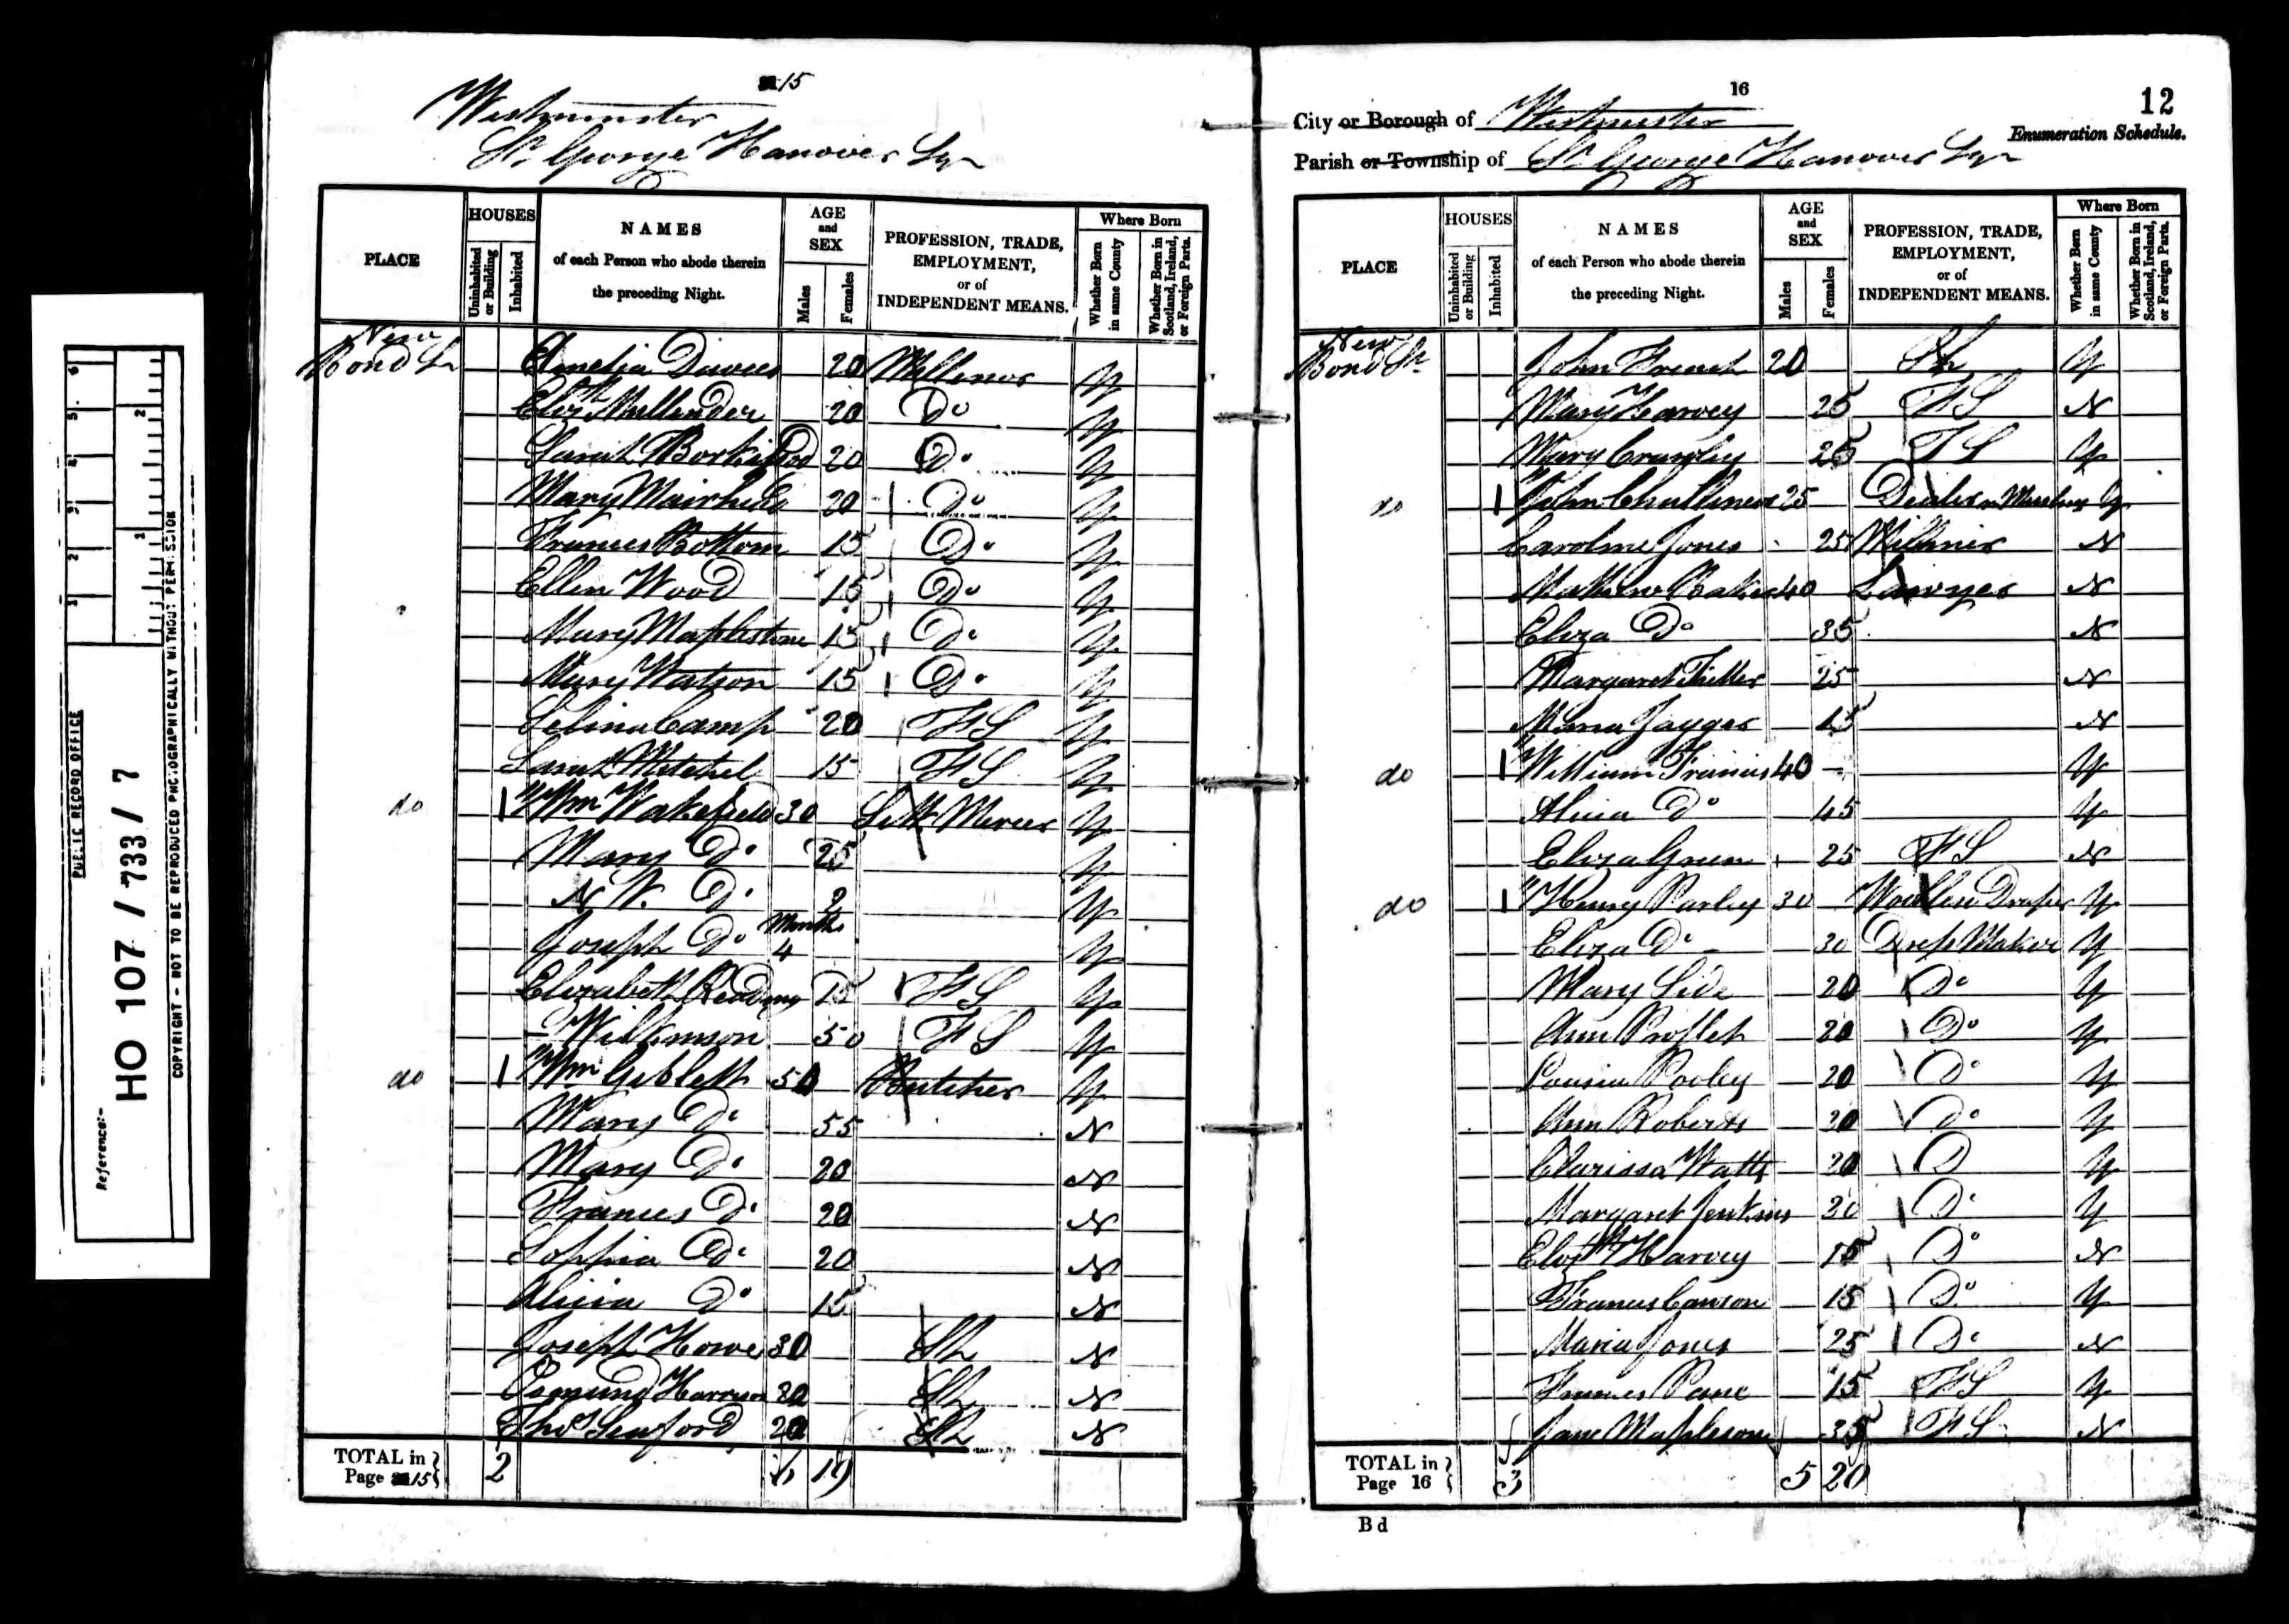 15
Westminster
St George Hanover Sqr
PLACE
HOUSES
Uninhabited or Building
Inhabited
NAMES
of each Person who abode therein
the preceding Night.
AGE
and
SEX
Males
Females
PROFESSION, TRADE,
EMPLOYMENT,
or of
INDEPENDENT MEANS.
Where Born
Whether Born in same County
Whether Born in Scotland, Ireland, or Foreign Parts.
New
Bond St Amelia Davies 20 Milliner Y
Elizth Mullender 20 Do Y
Sarah 20 Do Y
Mary Muirhead 20 Do Y
Frances Bottom 15 Do Y
Ellen Wood 15 Do Y
Mary Maplestone 15 Do Y
Mary Watson 15 Do Y
Selina Camp 20 FS Y
Sarah Mitchel 15 FS Y
do 1 Wm Wakefield 30 Silk Mercer Y
Mary Do 25 Y
N. W. Do 2 Y
Joseph Do Months 4 Y
Elizabeth Reading 15 FS Y
— Wilkinson 50 FS Y
do 1 Wm Giblett 50 Butcher Y
Mary Do 55 N
Mary Do 20 N
Frances Do 20 N
Sophia Do 20 N
Alicia Do 15 N
Joseph Howe 30 Sh N
Osmund Harrison 20 Sh N
Thos Seaford 20 Sh N
TOTAL in Page 15 2 6 19
16
12
City or Borough of Westminster
Enumeration Schedule.
Parish or Township of St George Hanover Sqr
PLACE
HOUSES
Uninhabited or Building
Inhabited
NAMES
of each Person who abode therein
the preceding Night.
AGE
and
SEX
Males
Females
PROFESSION, TRADE,
EMPLOYMENT,
or of
INDEPENDENT MEANS.
Where Born
Whether Born in same County
Whether Born in Scotland, Ireland, or Foreign Parts.
New
Bond St John French 20 Sh Y
Mary Harvey 25 FS N
Mary Crawley 25 FS Y
do 1 John Challenor 25 Dealer in Y
Caroline Jones 25 Milliner N
Mathew Baker 40 Lawyer N
Eliza Do 35 N
Margaret 25 N
Maria Jaggar 15 N
do 1 William Francis 40 Y
Alicia Do 45 Y
Eliza Green 25 FS N
do 1 Henry Parley 30 Woollen Draper Y
Eliza Do 30 Dress Maker Y
Mary Side 20 Do Y
Ann 20 Do Y
Louisa Pooley 20 Do Y
Ann Roberts 20 Do Y
Clarissa Watts 20 D Y
Margaret Jenkins 20 Do Y
Elizth Harvey 15 Do N
Frances Cawson 15 Do Y
Maria Jones 25 Do N
Frances Pane 15 FS Y
Jane Mapleson 35 FS N
TOTAL in Page 16 3 5 20
B d
PUBLIC RECORD OFFICE
Reference:-
HO 107 / 733 / 7
COPYRIGHT - NOT TO BE REPRODUCED PHOTOGRAPHICALLY WITHOUT PERMISSION
1 2 3 4 5 6
1 2